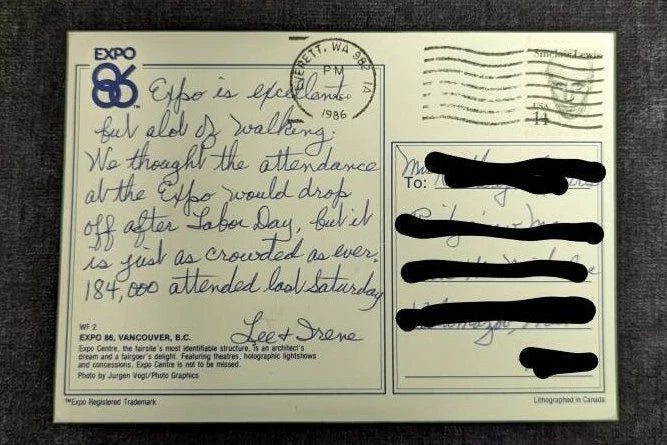 EXPO
86
Expo is excellant
but alot of walking.
We thought the attendance
at the Expo would drop
off after Labor Day, but it
is just as crowded as ever.
184,000 attended last Saturday
Lee + Irene
WF 2
EXPO 86, VANCOUVER, B.C.
Expo Centre, the fairsite's most identifiable structure, is an architect's
dream and a fairgoer's delight. Featuring theatres, holographic lightshows
and concessions, Expo Centre is not to be missed.
Photo by Jurgen Vogt/Photo Graphics
™Expo Registered Trademark
EVERETT, WA 982 1A
PM
1986
Sinclair Lewis
USA
14
To:
Lithographed in Canada